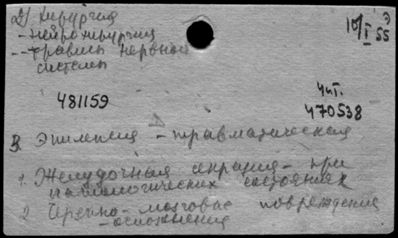 2) Хирургия
10/I 55
- нейрохирургия
- травмы нервной
системы
481159
чит.
470538
3. Эпилепсия - травматическая
1. Желудочная секреция - при
патологических состояниях
2. Черепно-мозговые повреждения
- осложнения